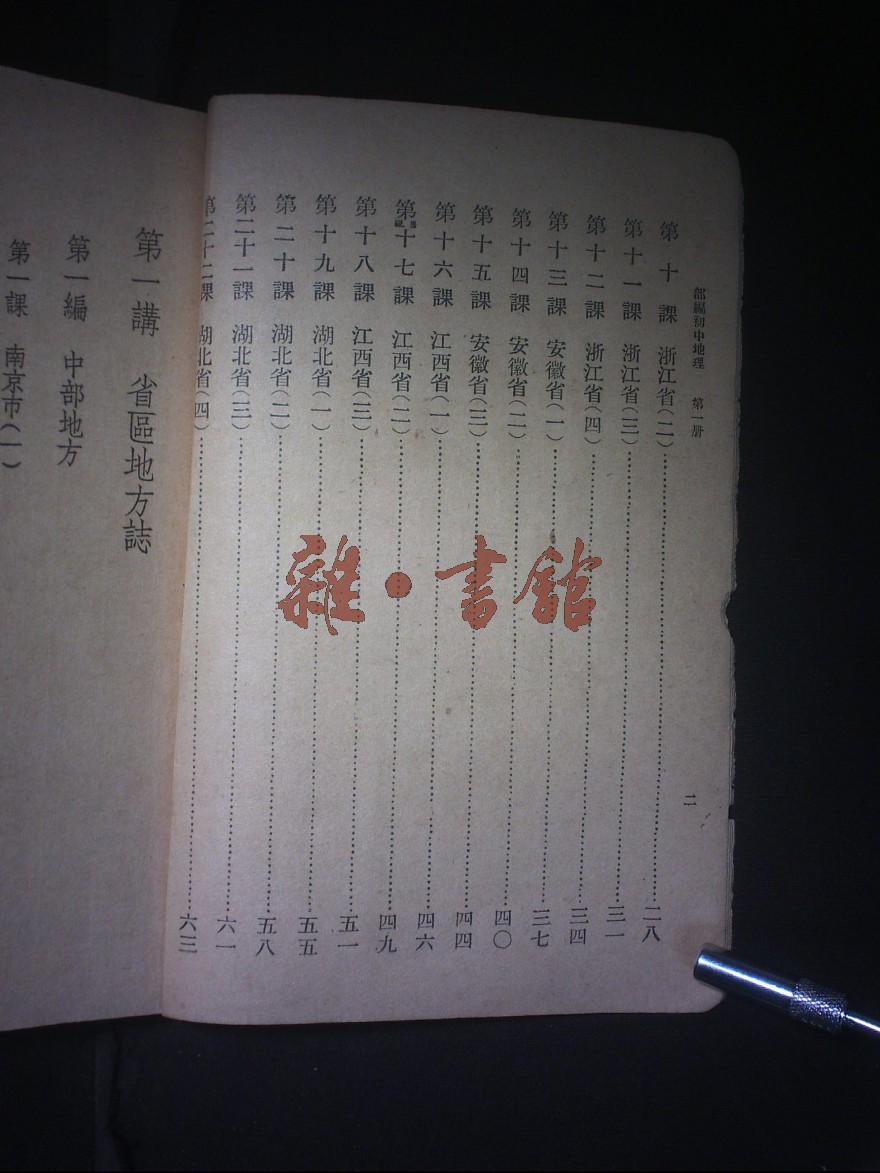 部編初中地理 第一册
二
第十課 浙江省(二)……二八
第十一課 浙江省(三)……三一
第十二課 浙江省(四)……三四
第十三課 安徽省(一)……三七
第十四課 安徽省(二)……四〇
第十五課 安徽省(三)……四四
第十六課 江西省(一)……四六
第十七課 江西省(二)……四九
第十八課 江西省(三)……五一
第十九課 湖北省(一)……五五
第二十課 湖北省(二)……五八
第二十一課 湖北省(三)……六一
第二十二課 湖北省(四)……六三
第一講 省區地方誌
第一編 中部地方
第一課 南京市(一)
雜·書館